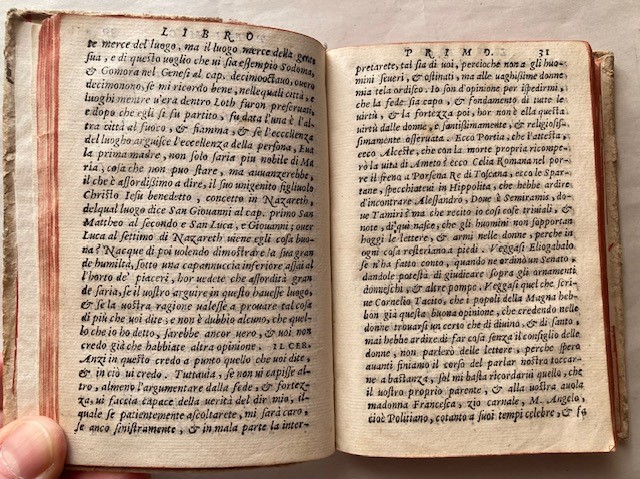 LIBRO
te merce del luogo, ma il luogo merce della gente
sua, e di questo uoglio che ui sia essempio Sodoma,
& Gomora nel Genesi al cap. decimoottauo, ouero
decimonono, se mi ricordo bene, nelle quali città, e
luoghi mentre u'era dentro Loth furon preseruati,
e dopo che egli si fu partito, fu data l'una è l'al-
tra città al fuoco, & fiamma, & se l'eccellenza
del luogho arguisce l'eccellenza della persona, Eua
la prima madre, non solo saria piu nobile di Ma
ria, cosa che non puo stare, ma auuanzerebbe,
il che è assordissimo a dire, il suo unigenito figliuolo
Christo Iesu benedetto, concetto in Nazareth,
del qual luogo dice San Giouanni al cap. primo San
Mattheo al secondo e San Luca, e Giouanni; ouer
Luca al settimo di Nazareth uiene egli cosa buo-
na? Nacque di poi uolendo dimostrare la sua gran
de humiltà, sotto una capannuccia inferiore assai al
l'horto de' piaceri, hor uedete che assordità gran
de saria, se il uostro arguire in questo hauesse luogo,
& se la uostra ragione ualesse a prouare tal cosa
di più che uoi dite; e non è dubbio alcuno, che quel-
lo che io ho detto, sarebbe ancor uero, & uoi non
credo già che habbiate altra opinione. IL CER.
Anzi in questo credo a punto quello che uoi dite,
& in ciò ui credo. Tuttauia, se non ui capisse al-
tro, almeno l'argumentare dalla fede, & fortez-
za, ui faccia capace della uerità del dir mio, il-
quale se patientemente ascoltarete, mi sarà caro,
se anco sinistramente, & in mala parte la inter-
PRIMO. 31
pretarete, tal sia di uoi, percioche non a gli huo-
mini seueri, & ostinati, ma alle uaghissime donne
mia tela ordisco. Io son d'opinion per ispedirmi,
che la fede sia capo, & fondamento di tute le
uirtù, & la fortezza poi, hor non è ella questa
uirtù dalle donne, e santissimamente, & religiosis-
simamente osseruata. Ecco Portia che l'attesta,
ecco Alceste, che con la morte propria ricompe-
rò la uita di Ameto? ecco Celia Romana nel por-
re il freno a Porsena Re di Toscana, ecco le Spar-
tane, specchiateui in Hippolita, che hebbe ardire
d'incontrare Alessandro, Doue è Semiramis, do-
ue Tamiri? ma che recito io cosi cose triuiali, &
note, di qui nasce, che gli huomini non sopportan
hoggi le lettere, & armi nelle donne, perche in
ogni cosa resteriano a piedi. Veggasi Eliogabalo
se n'ha fatto conto, quando ne ordinò un Senato,
dandole potestà di giudicare sopra gli ornamenti
donneschi, & altre pompe. Veggasi quel che scri-
ue Cornelio Tacito, che i popoli della Magna heb-
bon già questa buona opinione, che credendo nelle
donne trouarsi un certo che di diuino, & di santo,
mai hebbe ardire di far cosa senza il consiglio delle
donne, non parlerò delle lettere, perche spero
auanti finiamo il corso del parlar nostro toccar-
ne a bastanza, sol mi basta ricordarui quello, che
il uostro proprio parente, & alla uostra auola
madonna Francesca, zio carnale, M. Angelo,
cioè Politiano, cotanto a suoi tempi celebre, & sa